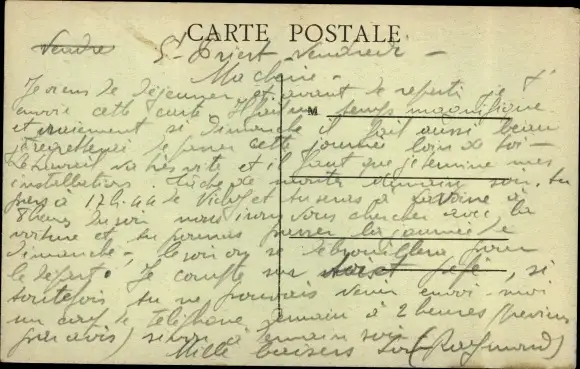 CARTE POSTALE
Vendre St Priest Vendredi -
Ma chérie -
Je viens de déjeuner et avant de repartir je t'
envoie cette carte. Il fait un temps magnifique
M
et vraiement si dimanche il fait aussi beau
je regretterai de passer cette journée loin de toi -
Le travail va très vite et il faut que je termine mes
installations. Tâche de monter demain soir. tu
pars à 17h.44 de Vichy et tu seras à
8 heures du soir nous irons vous chercher avec la
voiture et tu pourras passer la journée de
dimanche - le soir on se débrouillera pour
le départ. Je compte sur, si
toutefois tu ne pouvais venir envoi-moi
un coup de téléphone demain à 2 heures (
par avis) sinon à demain soir
Mille baisers Ton (Raymond)